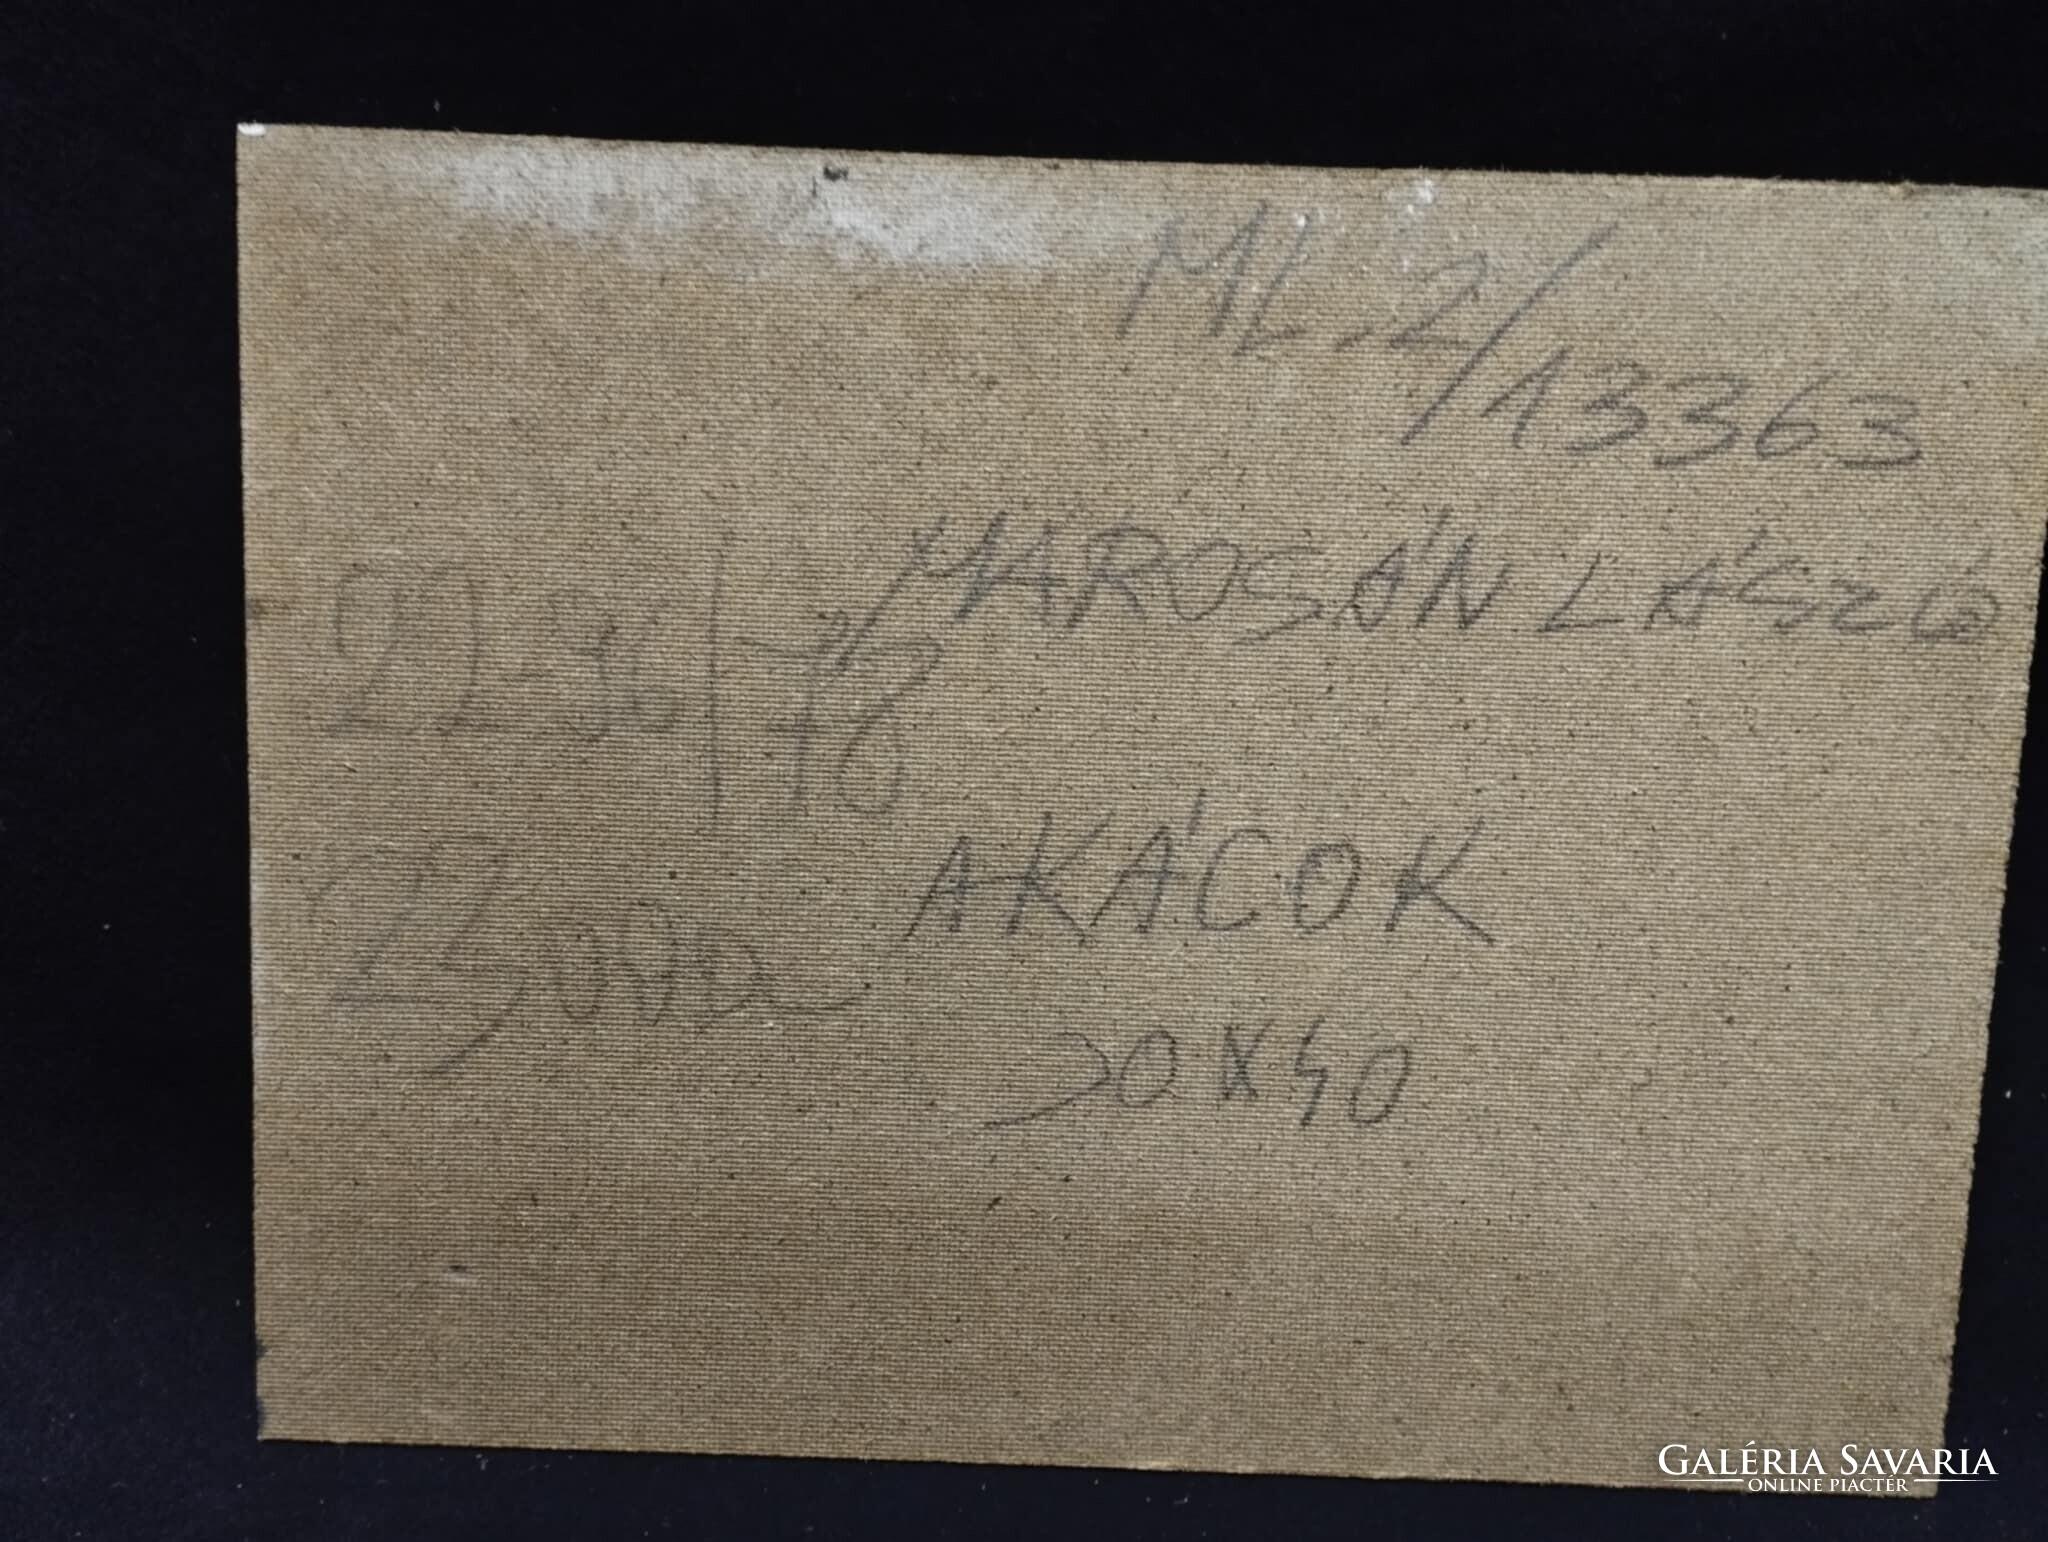 ML.2/13363
MAROSÁN LÁSZLÓ
22-36/78
AKÁCOK
30X40
GALÉRIA SAVARIA
ONLINE PIACTÉR